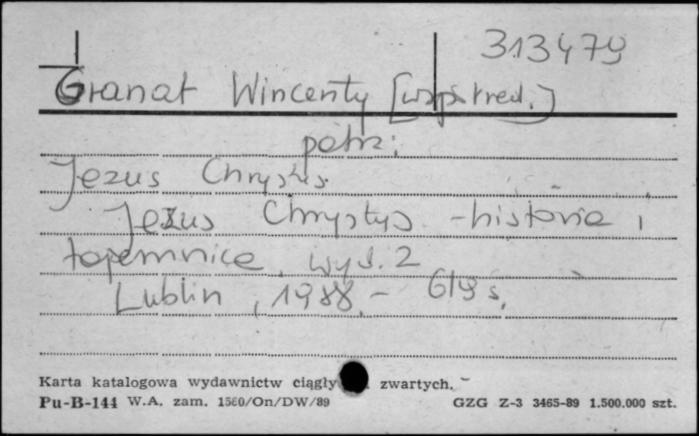 313479
Granat Wincenty [współred.]
patrz:
Jezus Chrystus
Jezus Chrystus - historia i
tajemnice, wyd. 2
Lublin, 1988. - 619 s.
Karta katalogowa wydawnictw ciągły zwartych.
Pu-B-144 W.A. zam. 1560/On/DW/89 GZG Z-3 3465-89 1.500.000 szt.